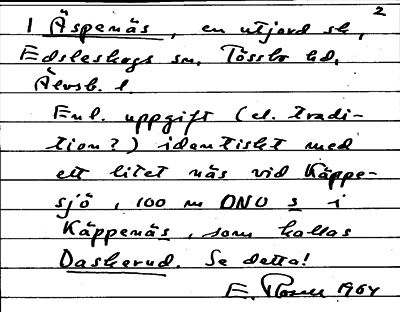 2
1 Äspenäs, en utjord sk,
Edsleskogs sn, Tössbo hd,
Älvsb. l.
Enl. uppgift (el. tradi-
tion?) identiskt med
ett litet näs vid Käppe-
sjö, 100 m ONO s i
Käppenäs, som kallas
Daskerud. Se detta!
E. 1964